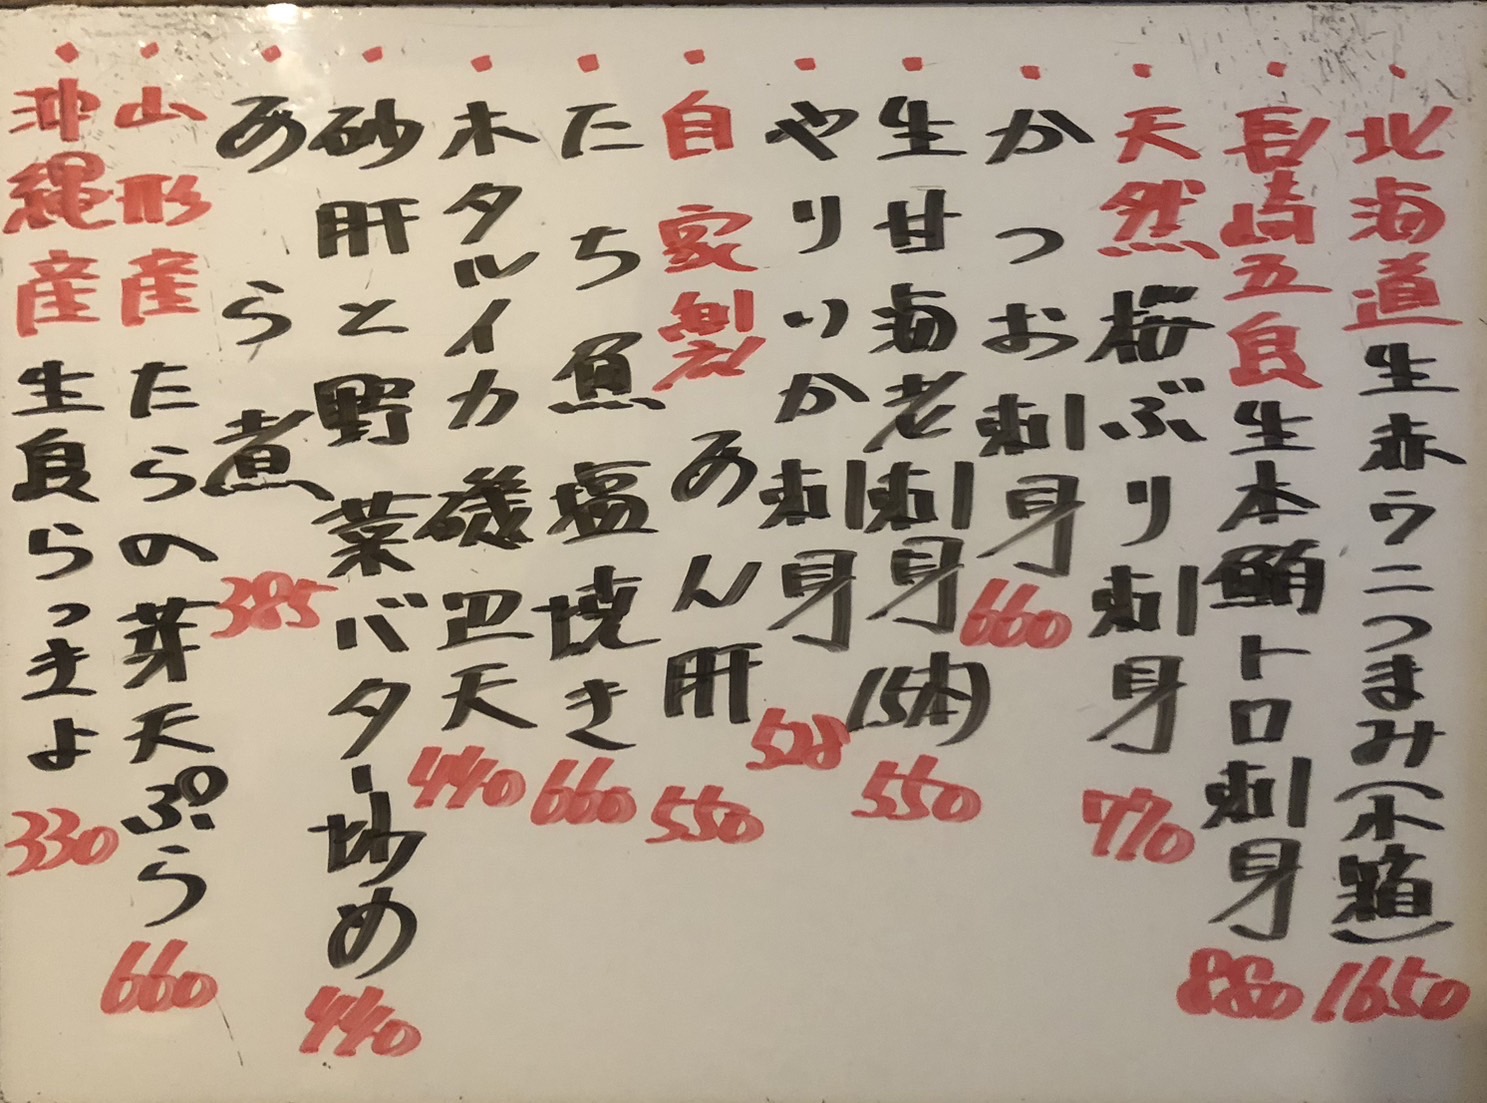 ・北海道生赤ウニつまみ(木箱)1650
・長崎五良生本鮪トロ刺身880
・天然桜ぶり刺身770
・かつお刺身660
・生甘海老刺身(5本)550
・やりいか刺身528
・自家製あん肝550
・たち魚塩焼き660
・ホタルイカ磯辺天440
・砂肝と野菜バター炒め440
・あら煮385
・山形産たらの芽天ぷら660
・沖縄産生良らっきょ330